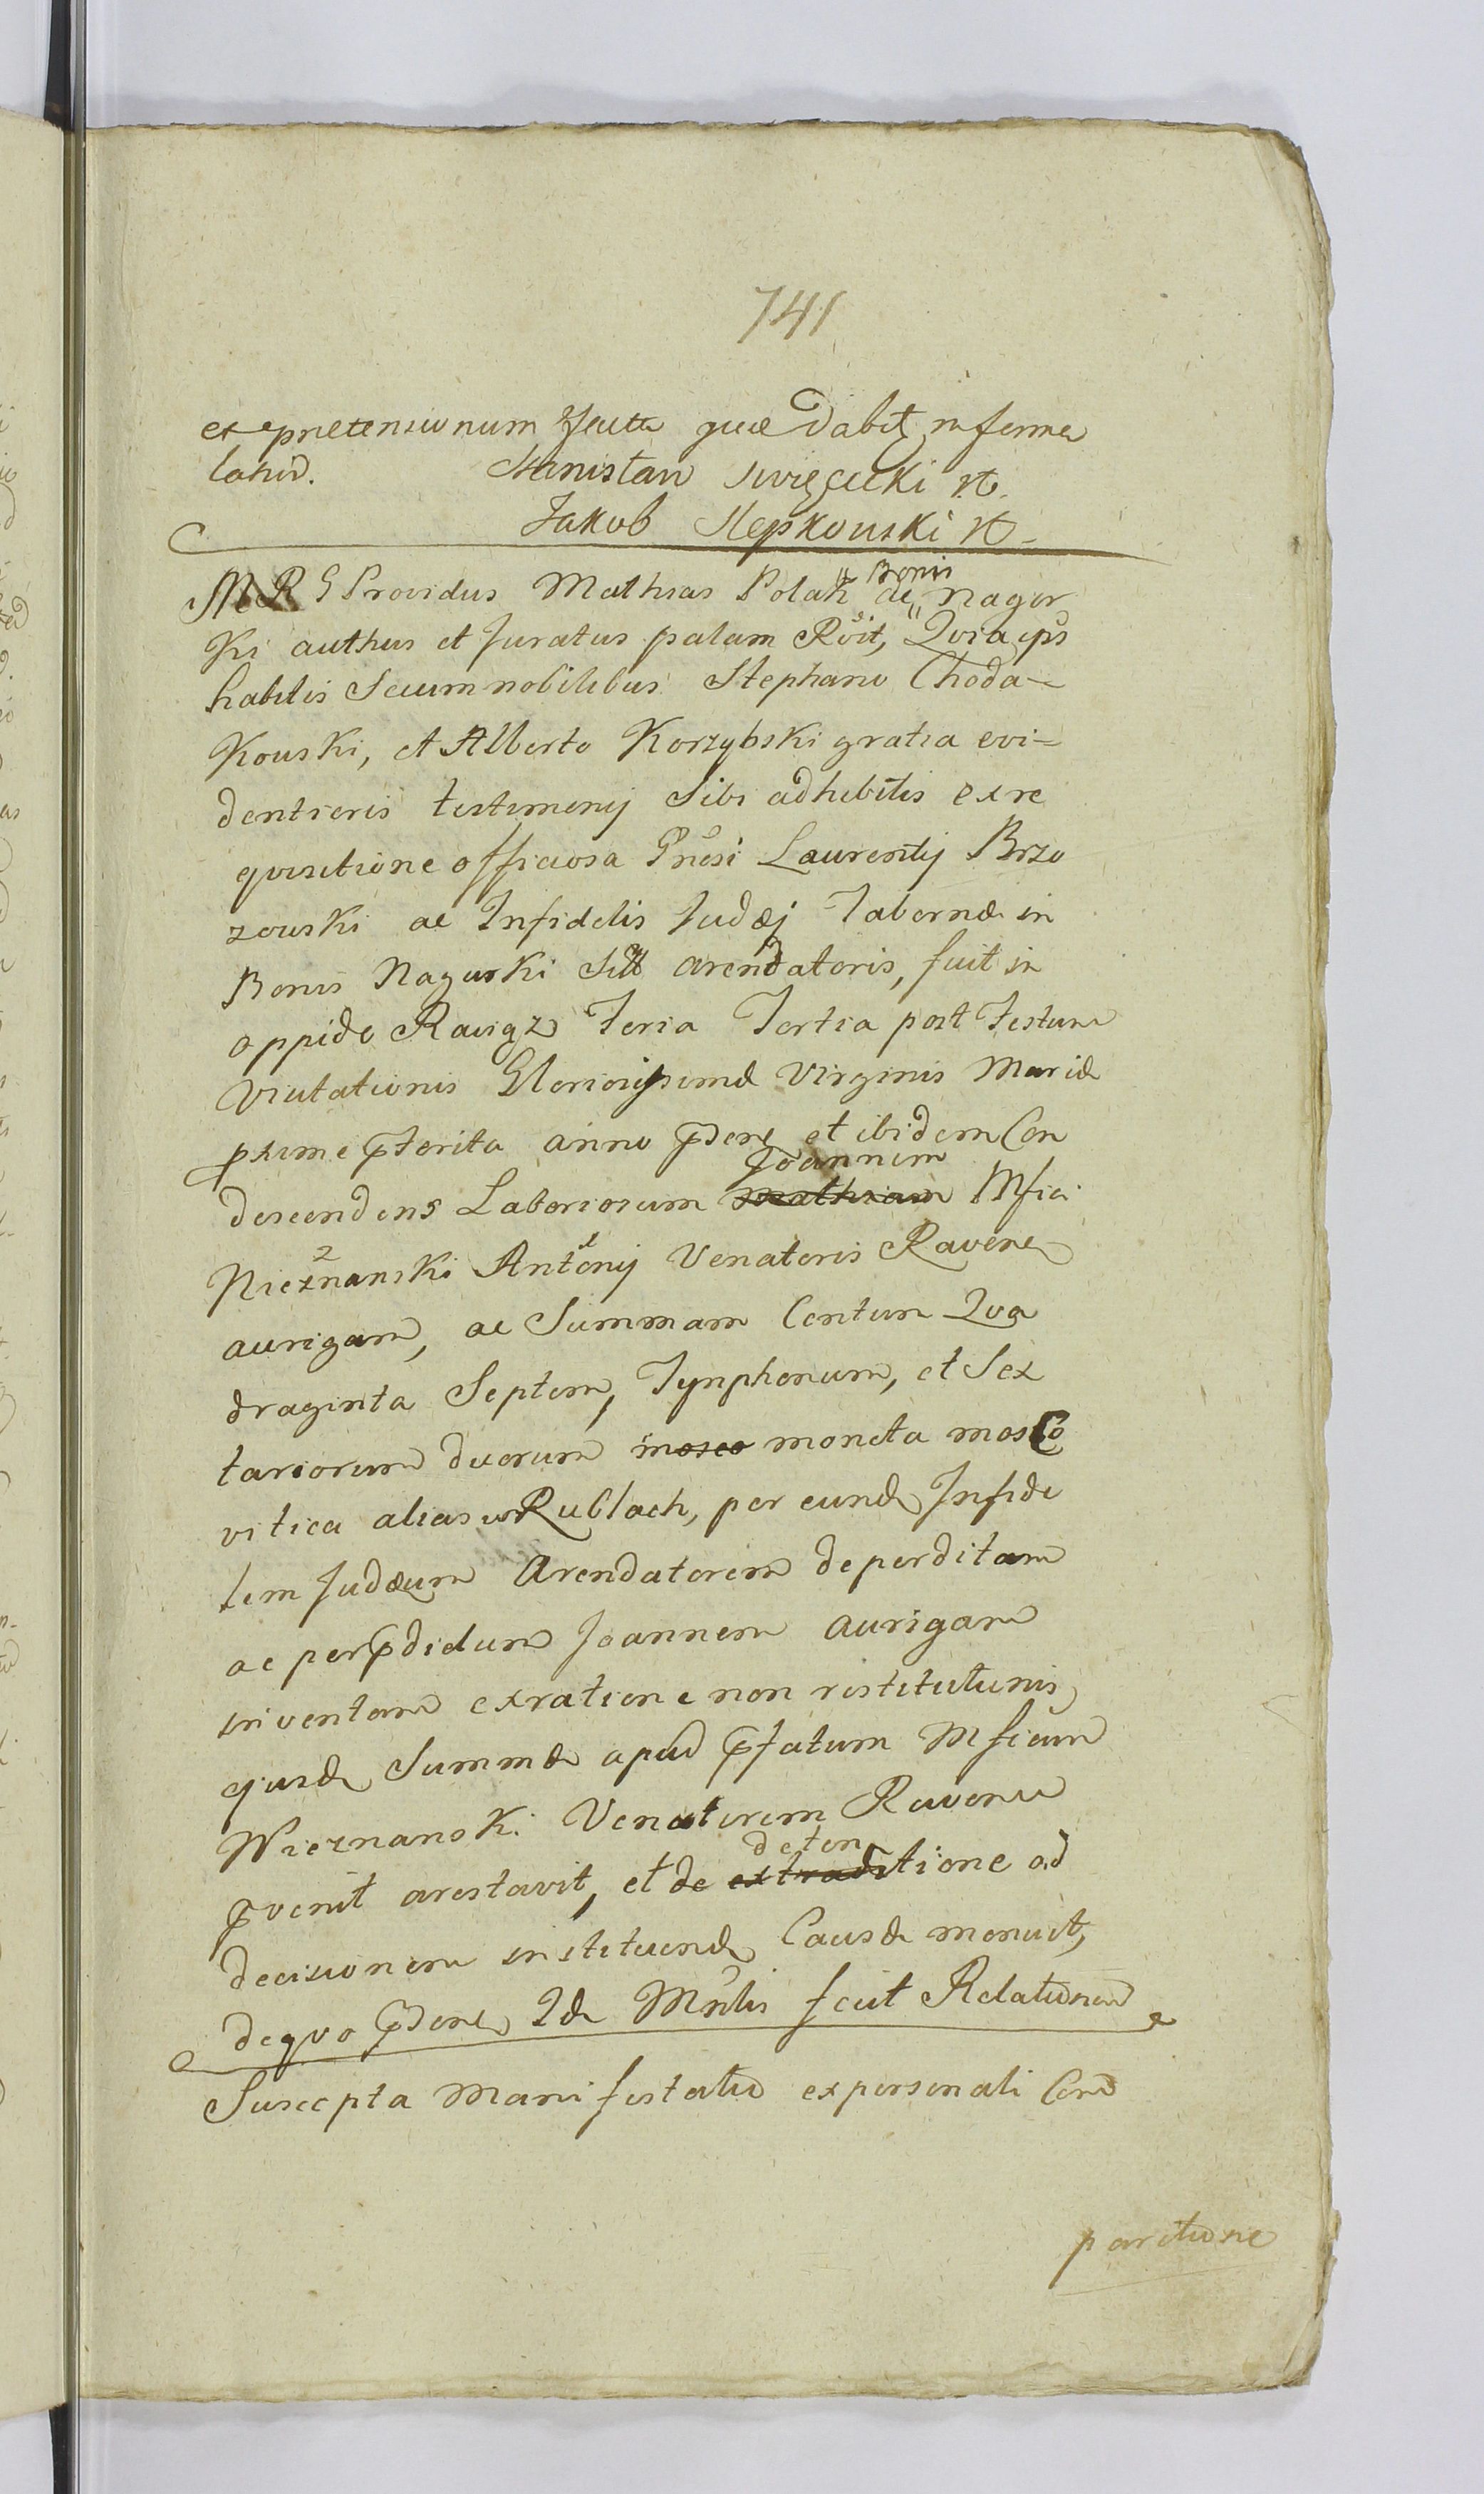 741
et prætensionum Jsectæ quæ dabit, in ferma
lahid.
Stanisław Swięcicki W.
Jakub Slepkowski W
M R G Providus Mathias Polak de Bonis Nagor
ki authus et Juratus palam Rööit, Quia ips
habilis Secum nobilibus Stephano Choda-
kouski, et Alberto Korzybski gratia evi=
dentioris testimonij Sibi adhibitis ex re
quisitione officiosa Gnosi Laurentij Brzo
zouski ac Infidelis Judæj Tabernæ in
Bonis Nagurki Sitt arendatoris, fuit in
oppido Rawga Feria Tertia post Festum
Visitationis Gloriosissimæ Virginis Mariæ
pxime pterita anno pdene et ibidem Con
descendens Laboriosum Joannem Mfici
Nieznanski Antonij Venatoris Ravene
aurigam, ac Summam Centum Qua
draginta Septem, Tynphonum, et Sex
tariorum duorum mosco moneta mosCo
vitica alias w Rublach, per eund Infide
lem Judæum Arendatorem deperditam
ac per pdictum Joannem Aurigam
inventam ex ratione non restitutionis
ejusd Summæ apud pfatum Mficum
Nieznanski Venatorem Ravene
pvenit arestavit, et de detentione ad
decisionem instituend Causæ monuit,
de quo pdene Id Mrlis fecit Relationem
Suscepta Manifestatio ex personali Com
paritione